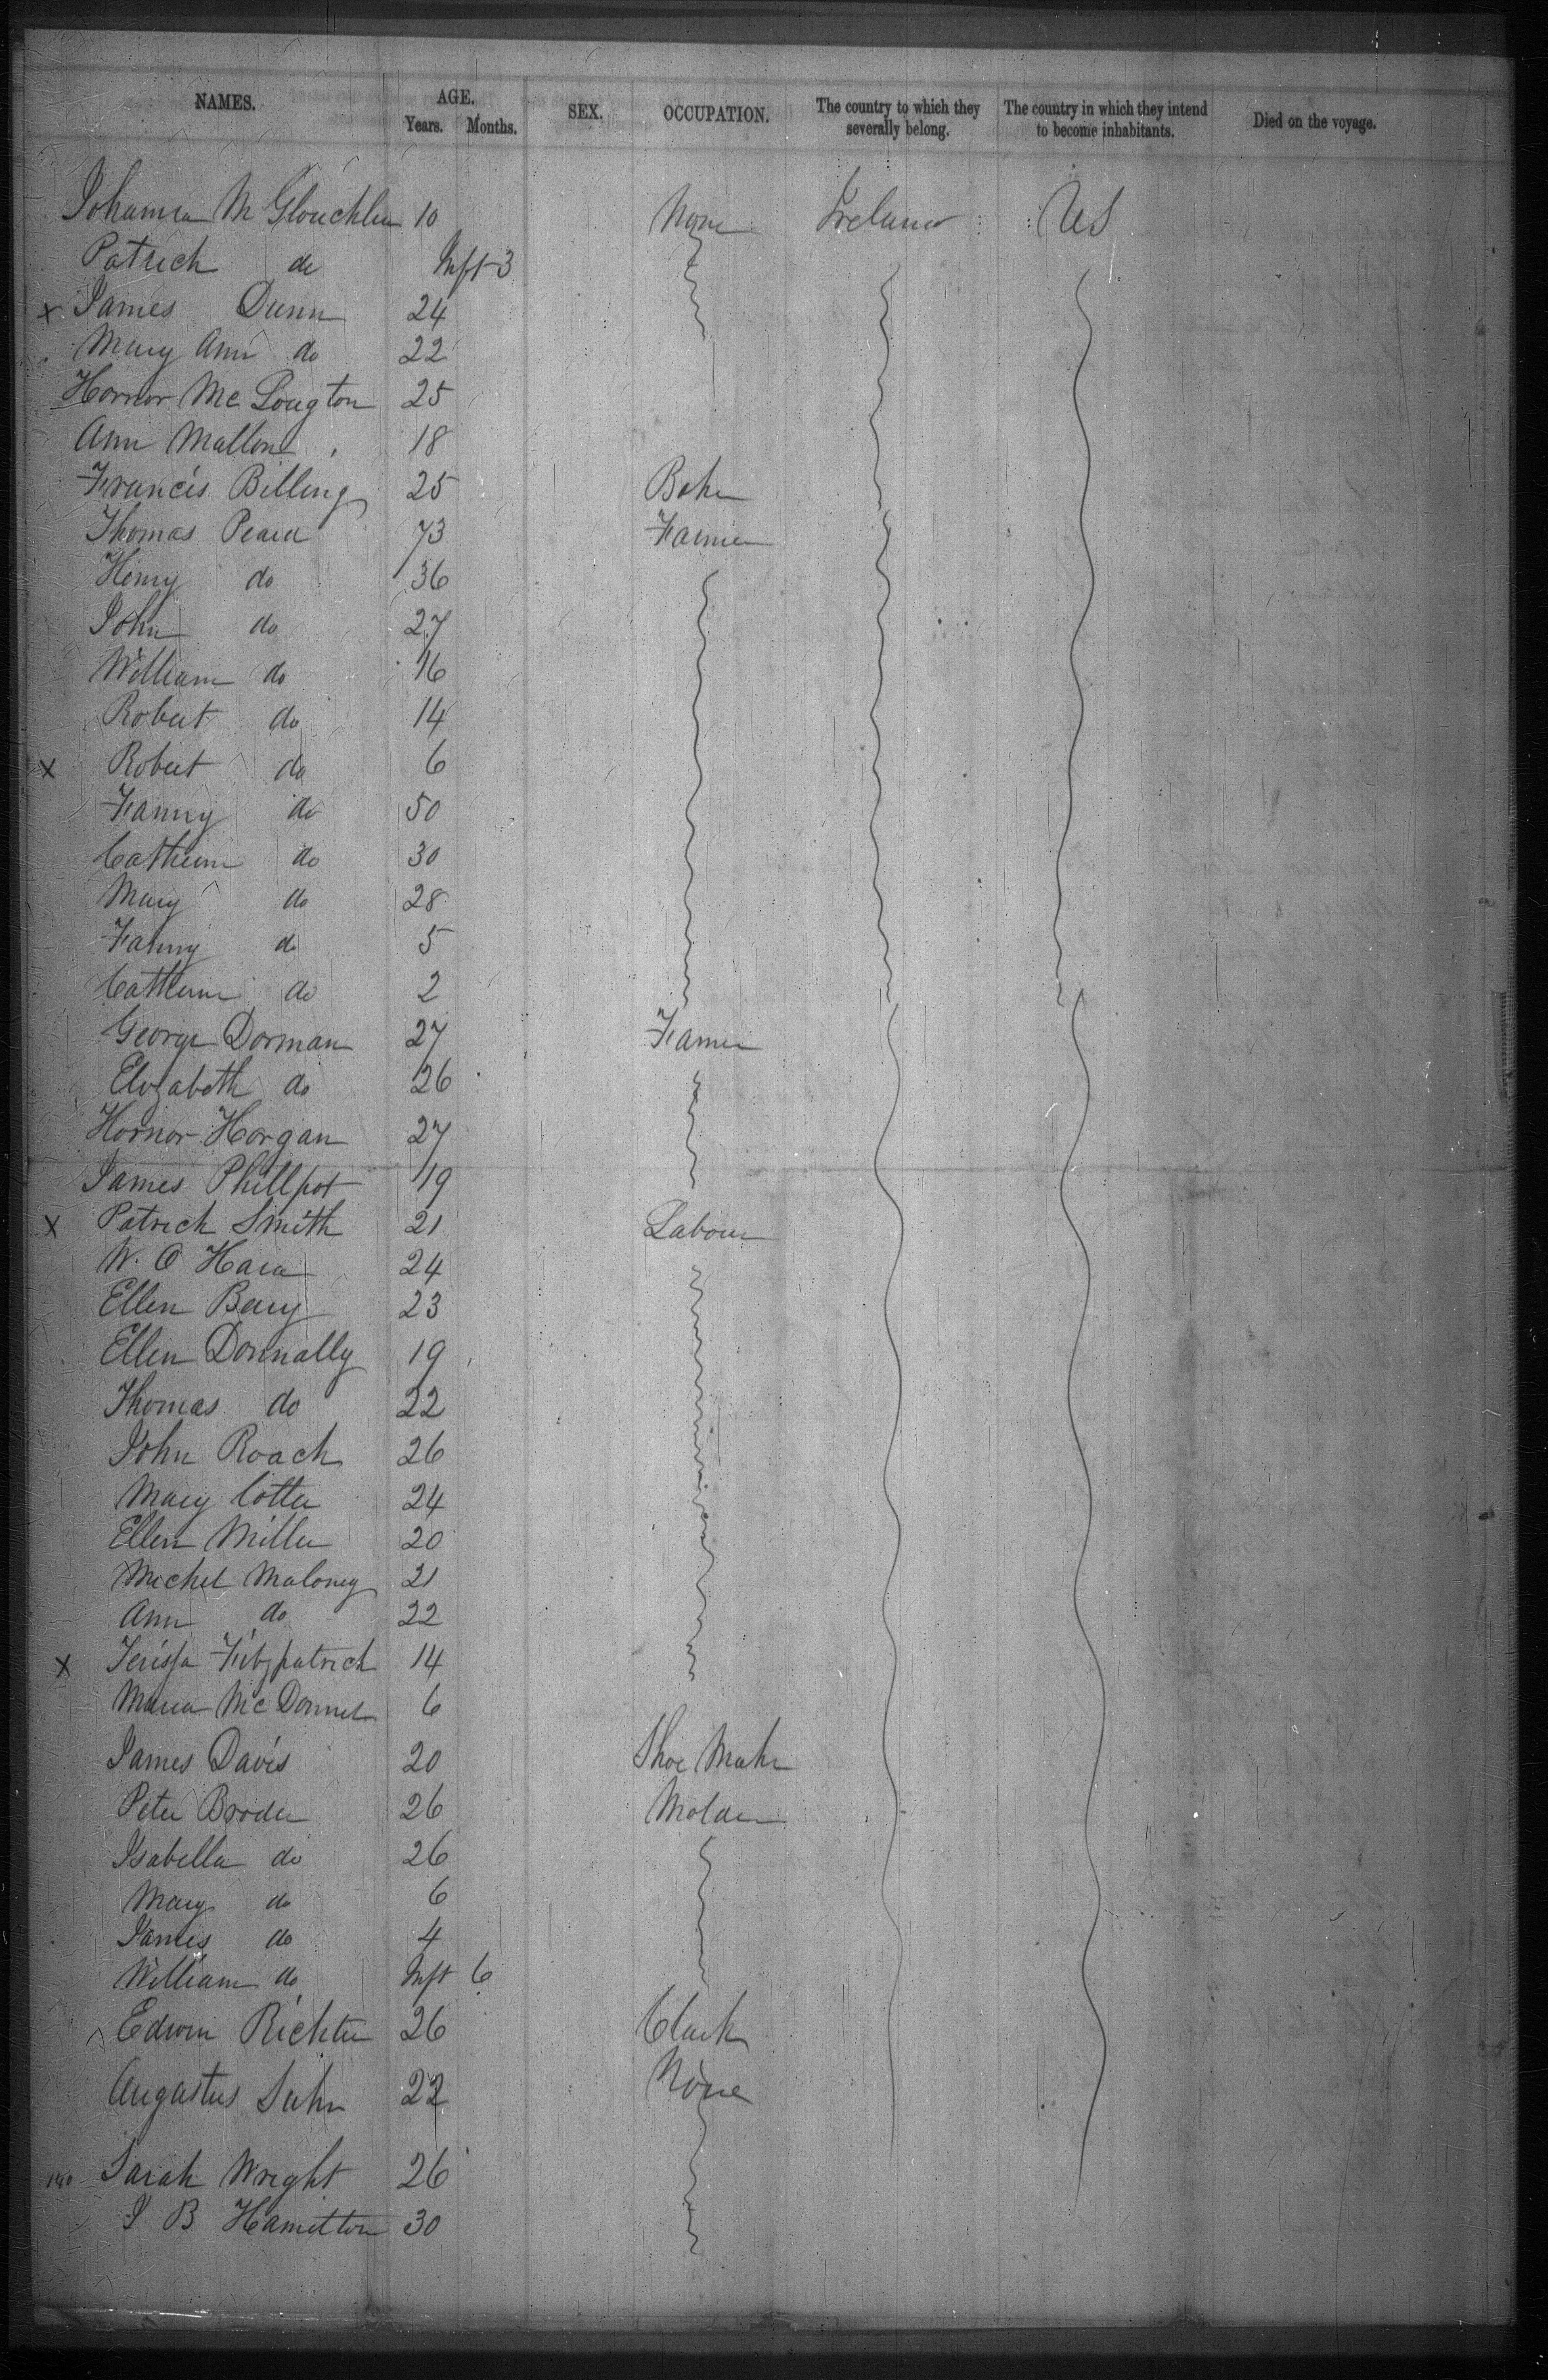 NAMES. AGE. Years. Months. SEX. OCCUPATION. The country to which they severally belong. The country in which they intend to become inhabitants. Died on the voyage.
Johanna Mc Glouchlin 10 None Ireland US
Patrick do Inft 3
x James Dunn 24
Mary Ann do 22
Hornor Mc Lougton 25
Ann Mallon 18
Francis Billing 25 Baker
Thomas Peard 73 Farmer
Henry do 36
John do 27
William do 16
Robert do 14
x Robert do 6
Fanny do 50
Catherine do 30
Mary do 28
Fanny do 5
Catherine do 2
George Dorman 27 Farmer
Elizabeth do 26
Hornor Horgan 27
James Phillpot 19
x Patrick Smith 21 Labour
W. O Hara 24
Ellen Barry 23
Ellen Donnally 19
Thomas do 22
John Roach 26
Mary Cotter 24
Ellen Miller 20
Michel Maloney 21
Ann do 22
x Terissa Fitzpatrick 14
Maria McDonnel 6
James Davis 20 Shoe Maker
Peter Broder 26 Molder
Isabella do 26
Mary do 6
James do 4
William do Inft 6
Edwin Richter 26 Clark
Augastus Suhn 22 None
Sarah Wright 26
J B Hamilton 30